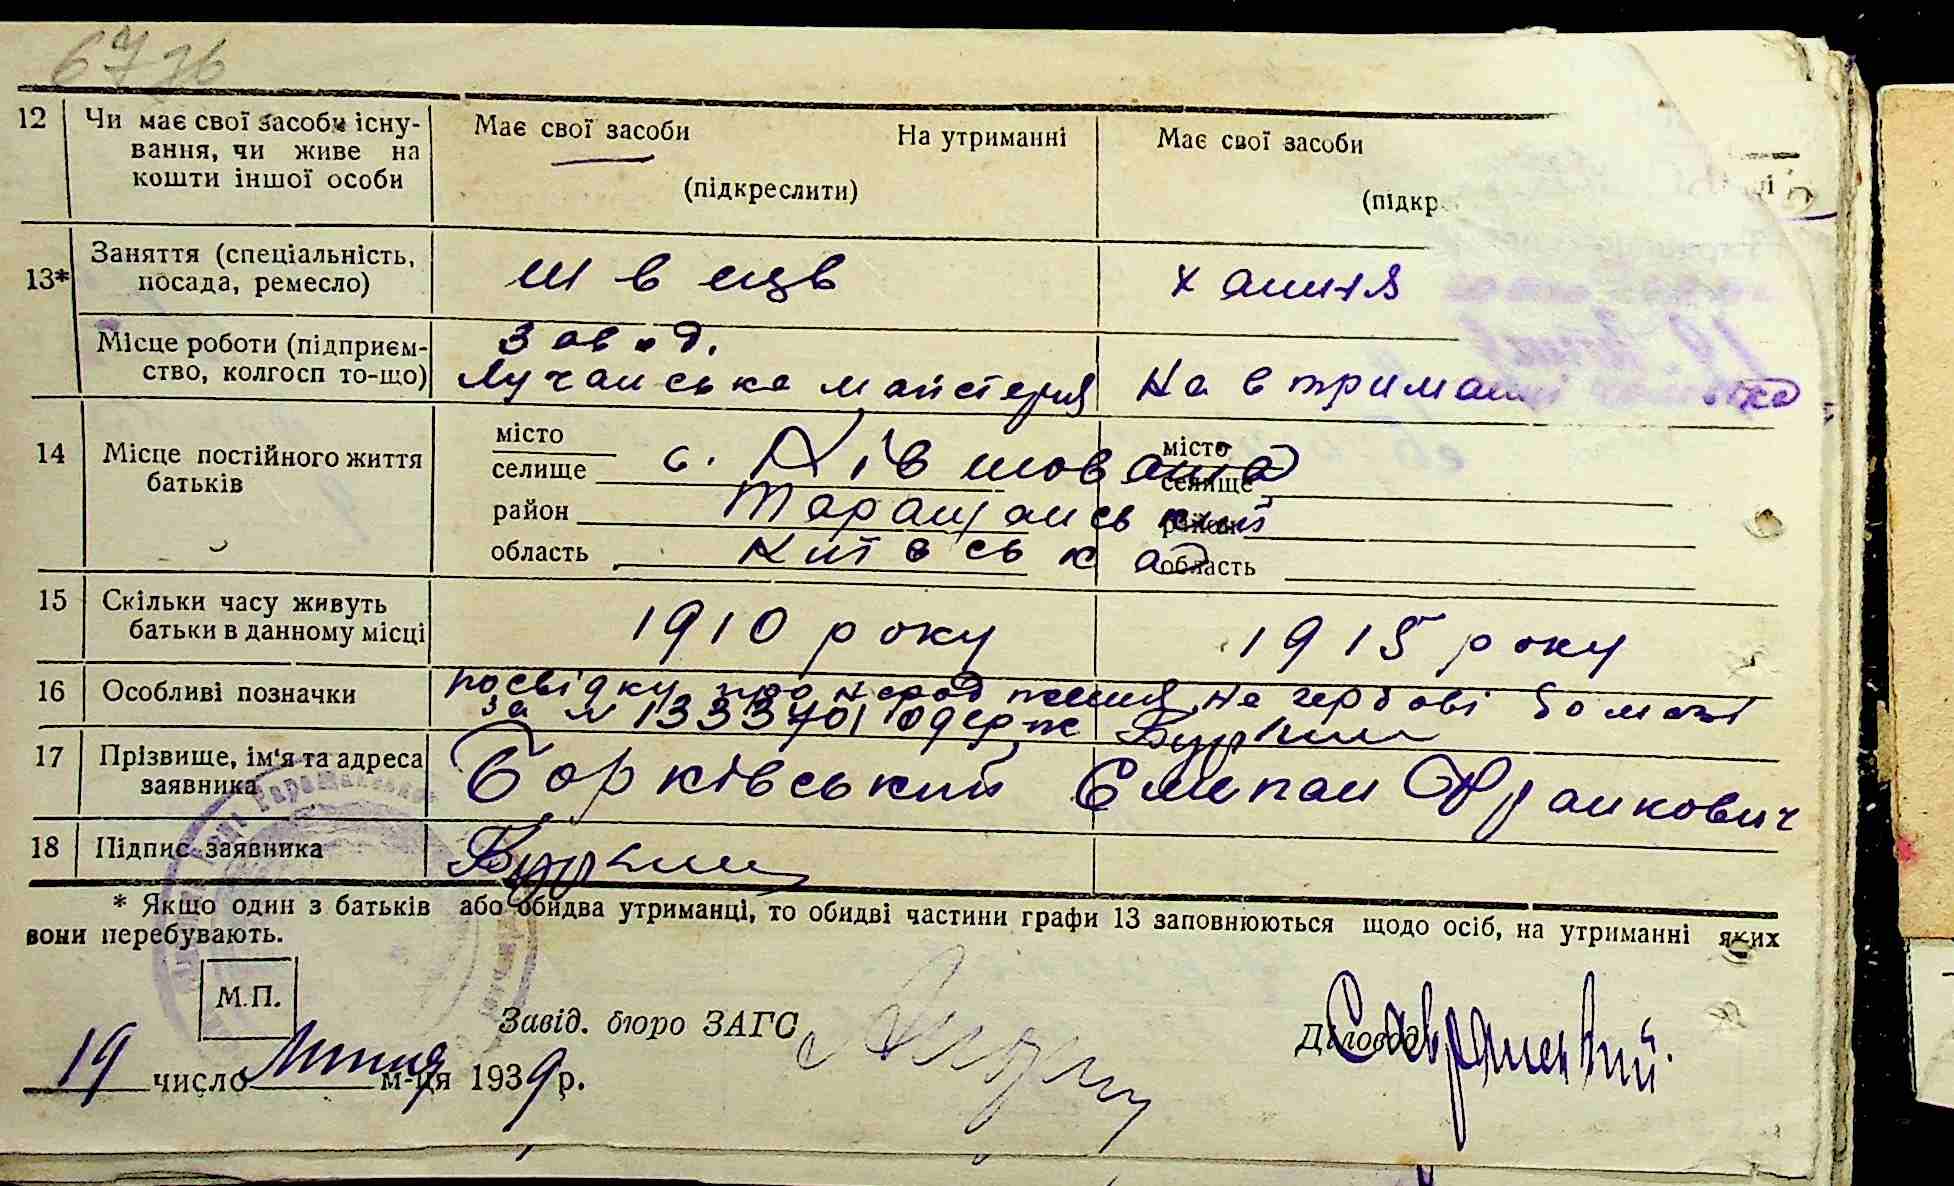 6776
12 Чи має свої засоби існу- Має свої засоби На утриманні Має свої засоби
вання, чи живе на
кошти іншої особи (підкреслити) (підкр
13* Заняття (спеціальність, посада, ремесло) швець хатня
Місце роботи (підприєм- завод.
ство, колгосп то-що) Лучанська майстерня на втриманні
14 Місце постійного життя батьків
місто місто
селище с. Ківшовата селище
район Таращанський район
область Київська область
15 Скільки часу живуть 1910 року 1915 року
батьки в данному місці
16 Особливі позначки посвідку про народження на гербові
за № 1333701 одерж
17 Прізвище, ім'я та адреса
заявника Борківський Степан Франкович
18 Підпис заявника
* Якщо один з батьків або обидва утриманці, то обидві частини графи 13 заповнюються щодо осіб, на утриманні яких
вони перебувають.
М.П.
Завід. бюро ЗАГС Діловод
19 число Липня м-ця 1939 р.